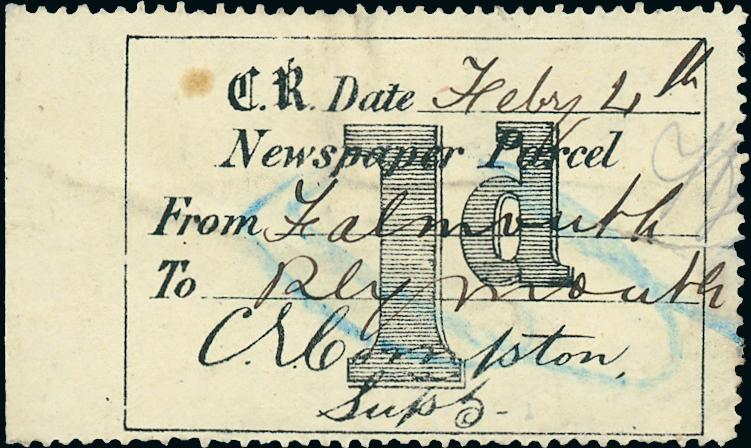 C.R. Date Feby 4th
Newspaper Parcel
From Falmouth
To Plymouth
1d
C.E. Compton,
Supt.